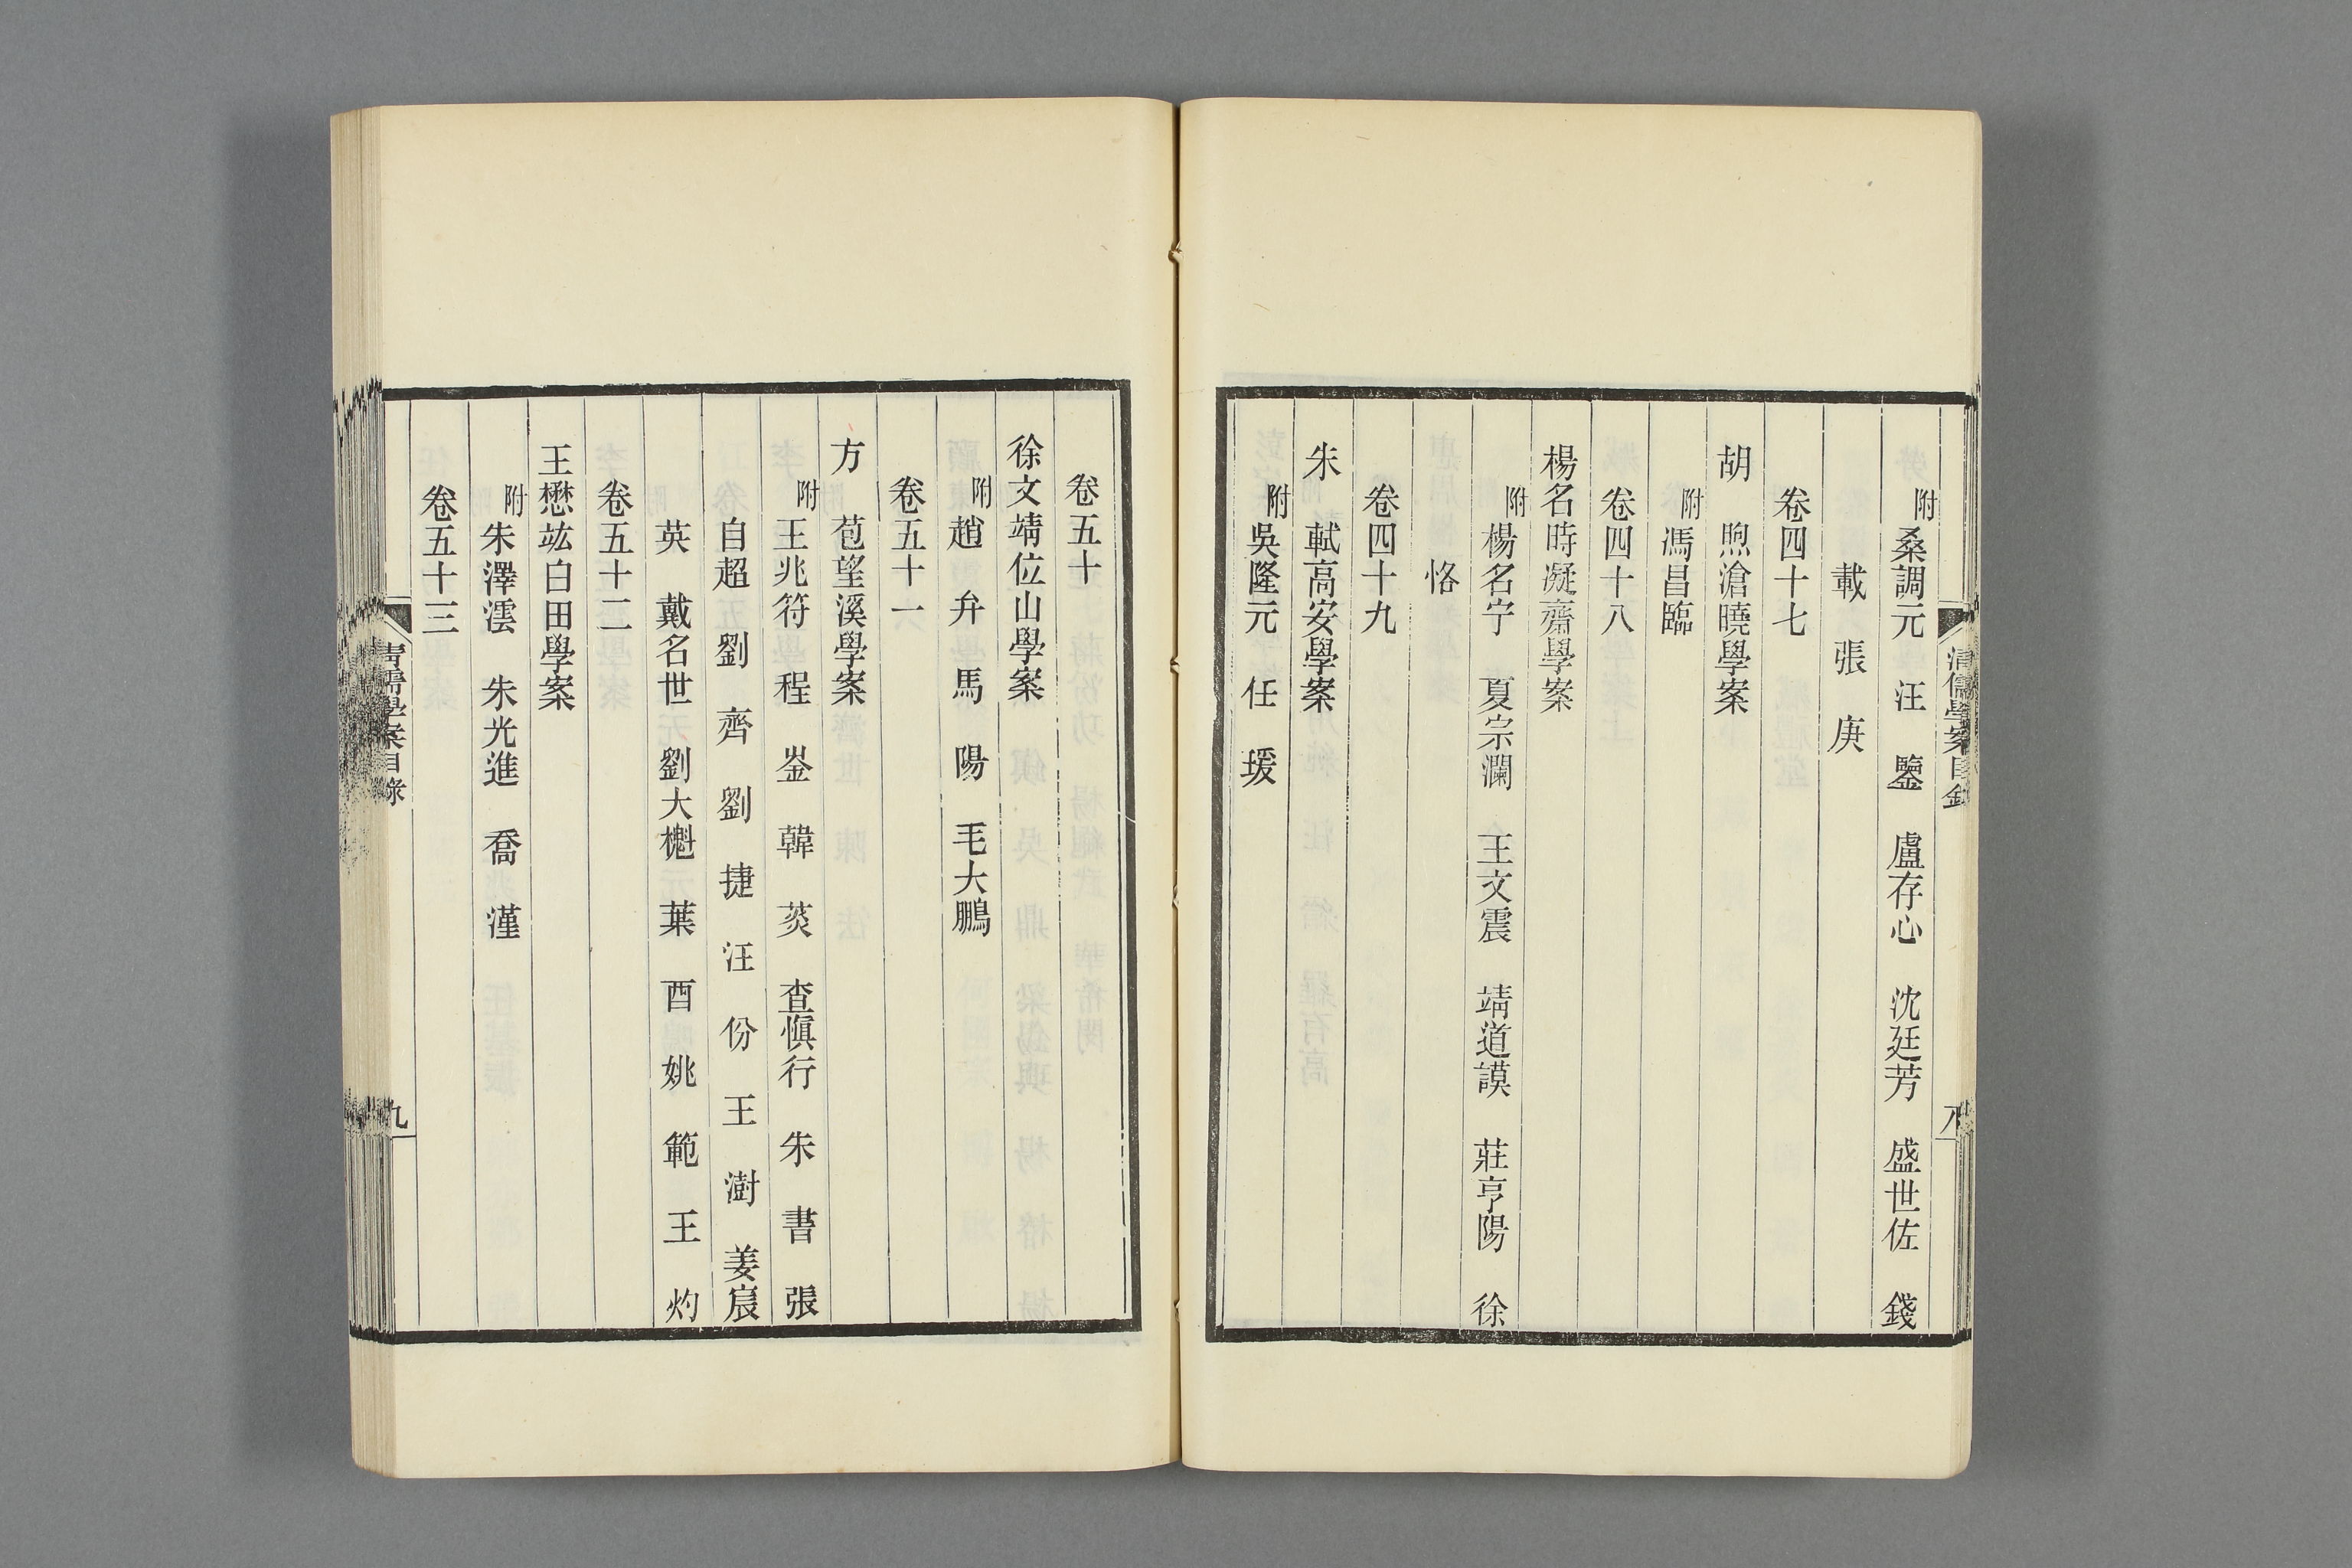 附桑調元　汪　鑒　盧存心　沈廷芳　盛世佐　錢
載　張　庚
卷四十七
胡　煦滄曉學案
附馮昌臨
卷四十八
楊名時凝齋學案
附楊名宁　夏宗瀾　王文震　靖道謨　莊亨陽　徐
恪
卷四十九
朱　軾高安學案
附吳隆元　任　瑗
清儒學案目錄
八
卷五十
徐文靖位山學案
附趙　弁　馬　陽　毛大鵬
卷五十一
方　苞望溪學案
附王兆符　程　崟　韓　菼　查慎行　朱　書　張
自超　劉　齊　劉　捷　汪　份　王　澍　姜宸
英　戴名世　劉大櫆　葉　酉　姚　範　王　灼
卷五十二
王懋竑白田學案
附朱澤澐　朱光進　喬　漌
卷五十三
清儒學案目錄
九